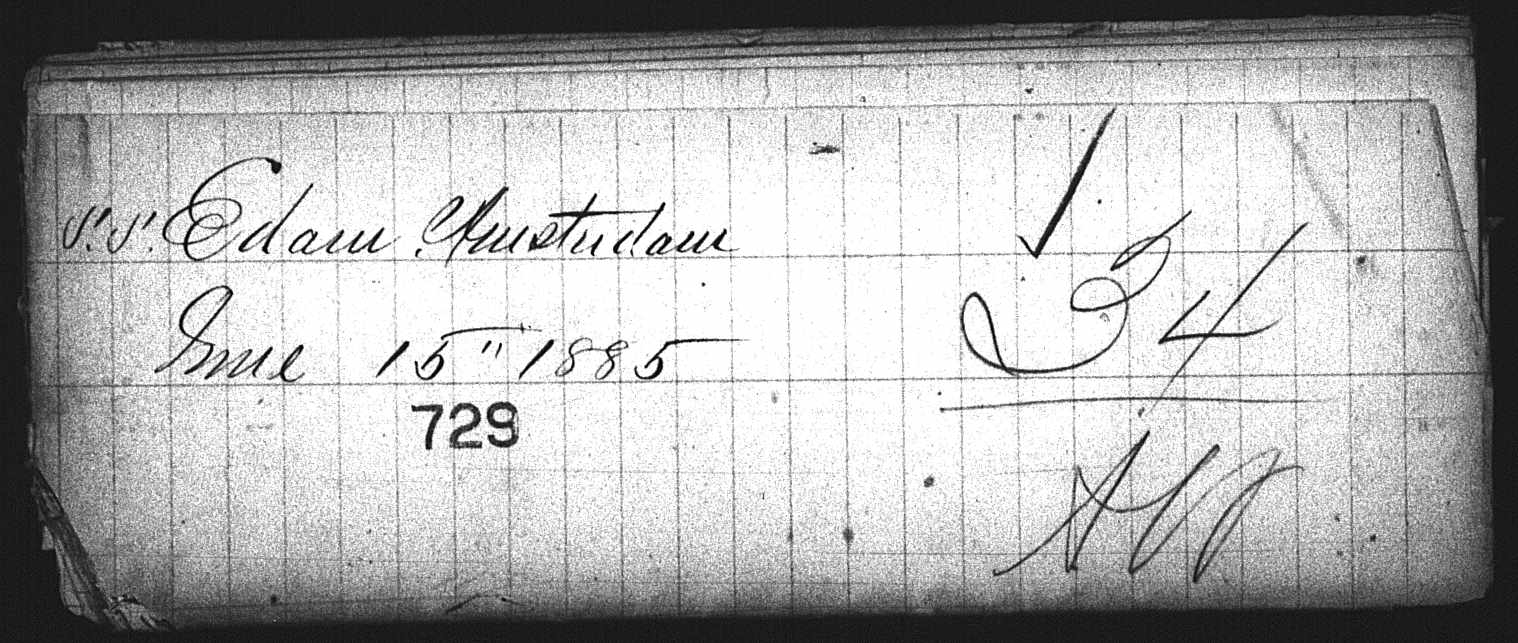 S.S. Edam Amsterdam
June 15" 1885
729
34